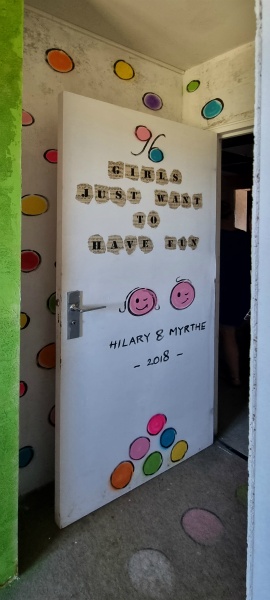 GIRLS
JUST WANT
TO
HAVE FUN
HILARY & MYRTHE
- 2018 -